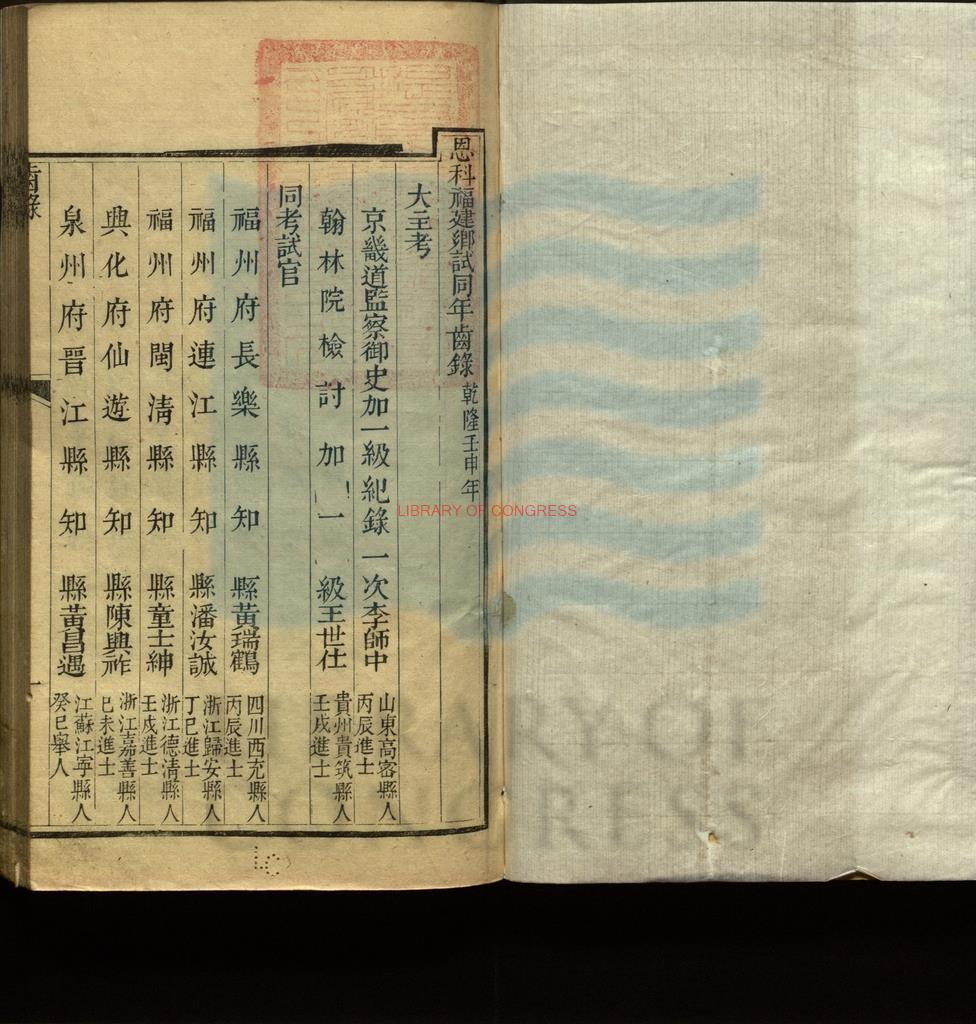 恩科福建鄉試同年齒錄 乾隆壬申年
大主考
京畿道監察御史加一級紀錄一次李師中 山東高密縣人 丙辰進士
翰林院檢討加一級王世仕 貴州貴筑縣人 壬戌進士
同考試官
福州府長樂縣知縣黃瑞鶴 四川西充縣人 丙辰進士
福州府連江縣知縣潘汝誠 浙江歸安縣人 丁巳進士
福州府閩清縣知縣童士紳 浙江德清縣人 壬戌進士
興化府仙遊縣知縣陳興祚 浙江嘉善縣人 己未進士
泉州府晉江縣知縣黃昌遇 江蘇江寧縣人 癸巳舉人
齒錄 一
LIBRARY OF CONGRESS
LC